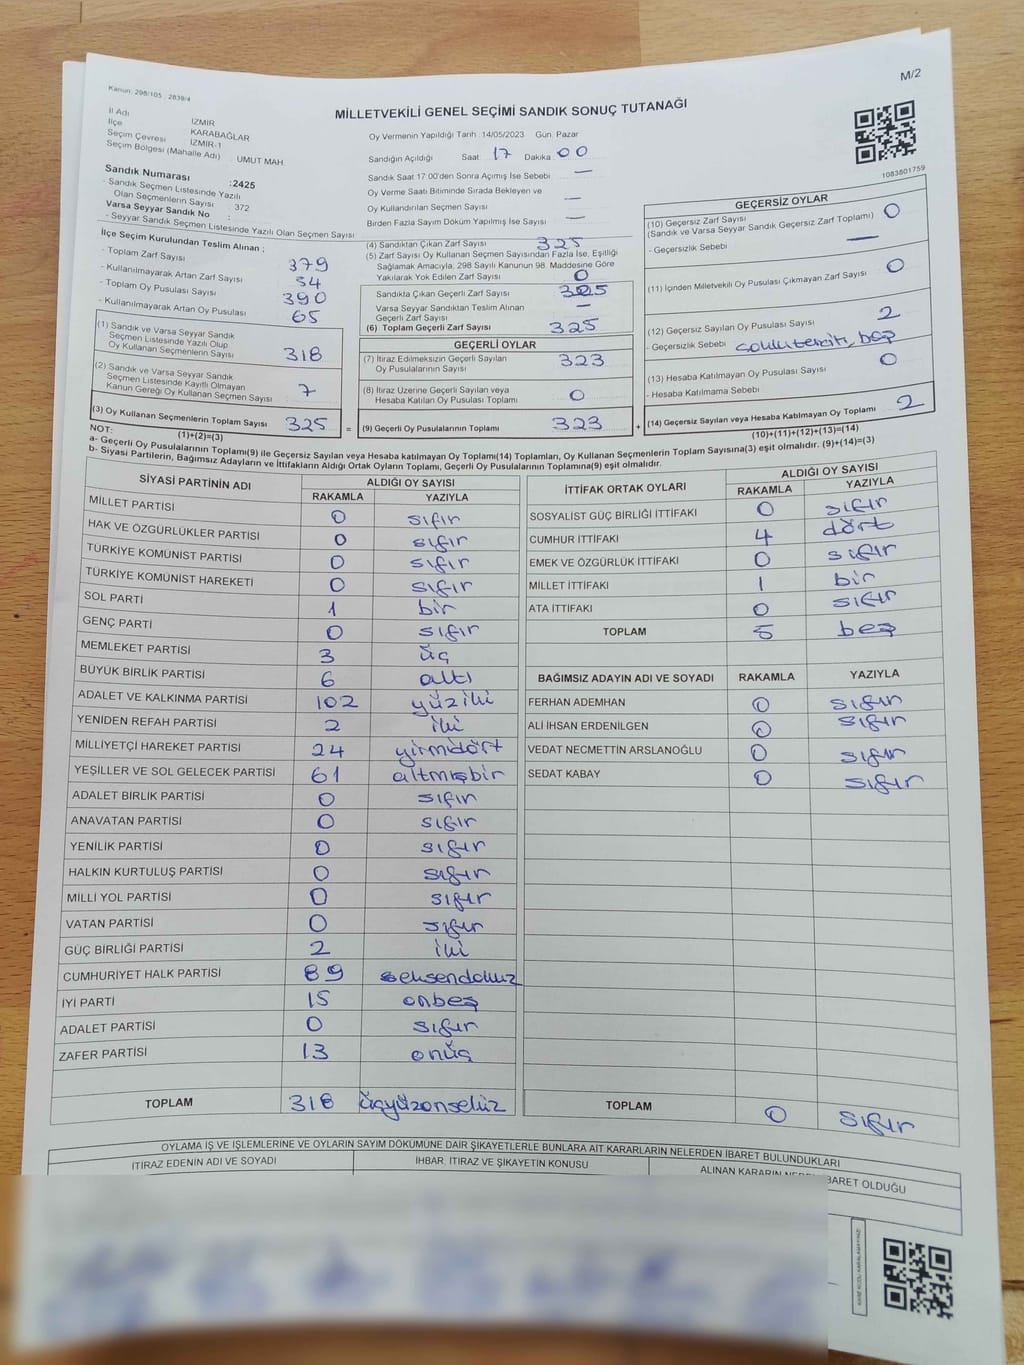 M/2
Kanun: 298/105 : 2839/4
MİLLETVEKİLİ GENEL SEÇİMİ SANDIK SONUÇ TUTANAĞI
İl Adı İZMİR
İlçe KARABAĞLAR
Seçim Çevresi İZMİR-1
Seçim Bölgesi (Mahalle Adı) : UMUT MAH.
Sandık Numarası :2425
- Sandık Seçmen Listesinde Yazılı
Olan Seçmenlerin Sayısı : 372
Varsa Seyyar Sandık No :
- Seyyar Sandık Seçmen Listesinde Yazılı Olan Seçmen Sayısı :
Oy Vermenin Yapıldığı Tarih :14/05/2023 Gün: Pazar
Sandığın Açıldığı Saat: 17 Dakika: 00
Sandık Saat 17:00'den Sonra Açımış İse Sebebi : —
Oy Verme Saati Bitiminde Sırada Bekleyen ve
Oy Kullandırılan Seçmen Sayısı : —
Birden Fazla Sayım Döküm Yapılmış İse Sayısı : —
1083801759
İlçe Seçim Kurulundan Teslim Alınan ;
- Toplam Zarf Sayısı : 379
- Kullanılmayarak Artan Zarf Sayısı : 54
- Toplam Oy Pusulası Sayısı : 390
- Kullanılmayarak Artan Oy Pusulası : 65
(1) Sandık ve Varsa Seyyar Sandık
Seçmen Listesinde Yazılı Olup
Oy Kullanan Seçmenlerin Sayısı : 318
(2) Sandık ve Varsa Seyyar Sandık
Seçmen Listesinde Kayıtlı Olmayan
Kanun Gereği Oy Kullanan Seçmen Sayısı : 7
(3) Oy Kullanan Seçmenlerin Toplam Sayısı : 325 =
(1)+(2)=(3)
(4) Sandıktan Çıkan Zarf Sayısı : 325
(5) Zarf Sayısı Oy Kullanan Seçmen Sayısından Fazla İse, Eşitliği
Sağlamak Amacıyla, 298 Sayılı Kanunun 98. Maddesine Göre
Yakılarak Yok Edilen Zarf Sayısı : 0
Sandıkta Çıkan Geçerli Zarf Sayısı : 325
Varsa Seyyar Sandıktan Teslim Alınan
Geçerli Zarf Sayısı : —
(6) Toplam Geçerli Zarf Sayısı : 325
GEÇERLİ OYLAR
(7) İtiraz Edilmeksizin Geçerli Sayılan
Oy Pusulalarının Sayısı : 323
(8) İtiraz Üzerine Geçerli Sayılan veya
Hesaba Katılan Oy Pusulası Toplamı : 0
(9) Geçerli Oy Pusulalarının Toplamı : 323 +
GEÇERSİZ OYLAR
(10) Geçersiz Zarf Sayısı
(Sandık ve Varsa Seyyar Sandık Geçersiz Zarf Toplamı) : 0
- Geçersizlik Sebebi : —
(11) İçinden Milletvekili Oy Pusulası Çıkmayan Zarf Sayısı : 0
(12) Geçersiz Sayılan Oy Pusulası Sayısı : 2
- Geçersizlik Sebebi
(13) Hesaba Katılmayan Oy Pusulası Sayısı : 0
- Hesaba Katılmama Sebebi :
(14) Geçersiz Sayılan veya Hesaba Katılmayan Oy Toplamı : 2
(10)+(11)+(12)+(13)=(14)
NOT:
a- Geçerli Oy Pusulalarının Toplamı(9) ile Geçersiz Sayılan veya Hesaba katılmayan Oy Toplamı(14) Toplamları, Oy Kullanan Seçmenlerin Toplam Sayısına(3) eşit olmalıdır. (9)+(14)=(3)
b- Siyasi Partilerin, Bağımsız Adayların ve İttifakların Aldığı Ortak Oyların Toplamı, Geçerli Oy Pusulalarının Toplamına(9) eşit olmalıdır.
SİYASİ PARTİNİN ADI ALDIĞI OY SAYISI
RAKAMLA YAZIYLA
MİLLET PARTİSİ 0 sıfır
HAK VE ÖZGÜRLÜKLER PARTİSİ 0 sıfır
TÜRKİYE KOMÜNİST PARTİSİ 0 sıfır
TÜRKİYE KOMÜNİST HAREKETİ 0 sıfır
SOL PARTİ 1 bir
GENÇ PARTİ 0 sıfır
MEMLEKET PARTİSİ 3 üç
BÜYÜK BİRLİK PARTİSİ 6 altı
ADALET VE KALKINMA PARTİSİ 102 yüziki
YENİDEN REFAH PARTİSİ 2 iki
MİLLİYETÇİ HAREKET PARTİSİ 24 yirmidört
YEŞİLLER VE SOL GELECEK PARTİSİ 61 altmışbir
ADALET BİRLİK PARTİSİ 0 sıfır
ANAVATAN PARTİSİ 0 sıfır
YENİLİK PARTİSİ 0 sıfır
HALKIN KURTULUŞ PARTİSİ 0 sıfır
MİLLİ YOL PARTİSİ 0 sıfır
VATAN PARTİSİ 0 sıfır
GÜÇ BİRLİĞİ PARTİSİ 2 iki
CUMHURİYET HALK PARTİSİ 89 seksendokuz
İYİ PARTİ 15 onbeş
ADALET PARTİSİ 0 sıfır
ZAFER PARTİSİ 13 onüç
TOPLAM 318 üçyüzonsekiz
İTTİFAK ORTAK OYLARI ALDIĞI OY SAYISI
RAKAMLA YAZIYLA
SOSYALİST GÜÇ BİRLİĞİ İTTİFAKI 0 sıfır
CUMHUR İTTİFAKI 4 dört
EMEK VE ÖZGÜRLÜK İTTİFAKI 0 sıfır
MİLLET İTTİFAKI 1 bir
ATA İTTİFAKI 0 sıfır
TOPLAM 5 beş
BAĞIMSIZ ADAYIN ADI VE SOYADI RAKAMLA YAZIYLA
FERHAN ADEMHAN 0 sıfır
ALİ İHSAN ERDENİLGEN 0 sıfır
VEDAT NECMETTİN ARSLANOĞLU 0 sıfır
SEDAT KABAY 0 sıfır
TOPLAM 0 sıfır
OYLAMA İŞ VE İŞLEMLERİNE VE OYLARIN SAYIM DÖKÜMÜNE DAİR ŞİKAYETLERLE BUNLARA AİT KARARLARIN NELERDEN İBARET BULUNDUKLARI
İTİRAZ EDENİN ADI VE SOYADI İHBAR, İTİRAZ VE ŞİKAYETİN KONUSU ALINAN KARARIN NEDEN İBARET OLDUĞU